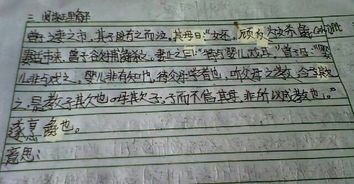 三、阅读理解
曾子妻之市,其子随之而泣,其母曰:"女还,顾反为女杀彘。"
妻适市来,曾子欲捕彘杀之,妻止之曰:"特与婴儿戏耳。"曾子曰:"婴
儿非与戏也。婴儿非有知也,待父母而学者也,听父母之教。今子欺
之,是教子欺也。母欺子,子而不信其母,非所以成教也。"
遂烹彘也。
意思: